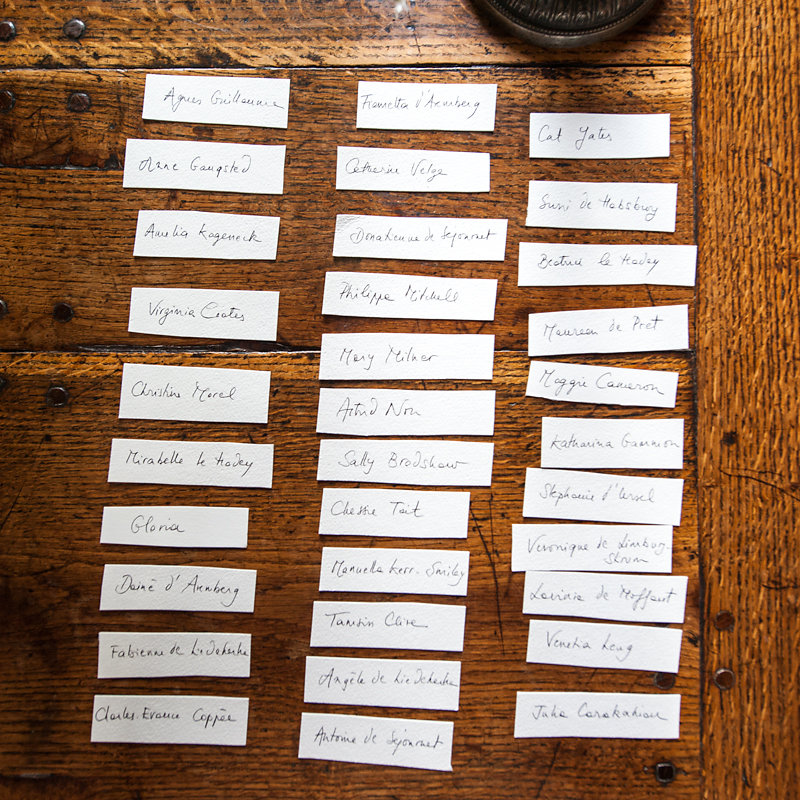 Agnes Guillaume
Anne Gaugsted
Amelia Kageneck
Virginia Coates
Christine Morel
Mirabelle le Hodey
Gloria
Dainé d'Arenberg
Fabienne de Liedekerke
Charles-Evence Coppée
Fiametta d'Arenberg
Catherine Velge
Donatienne de Sejournet
Philippa Mitchell
Mary Milner
Astrid Non
Sally Bradshaw
Chessie Tait
Manuella Kerr-Smiley
Tamsin Clive
Angèle de Liedekerke
Antoine de Sejournet
Cat Yates
Sunni de Habsburg
Beatrice le Hodey
Maureen de Pret
Maggie Cameron
Katharina Gammon
Stephanie d'Ursel
Veronique de Limburg-
Stirum
Lavinia de Moffart
Venetia Leng
Julia